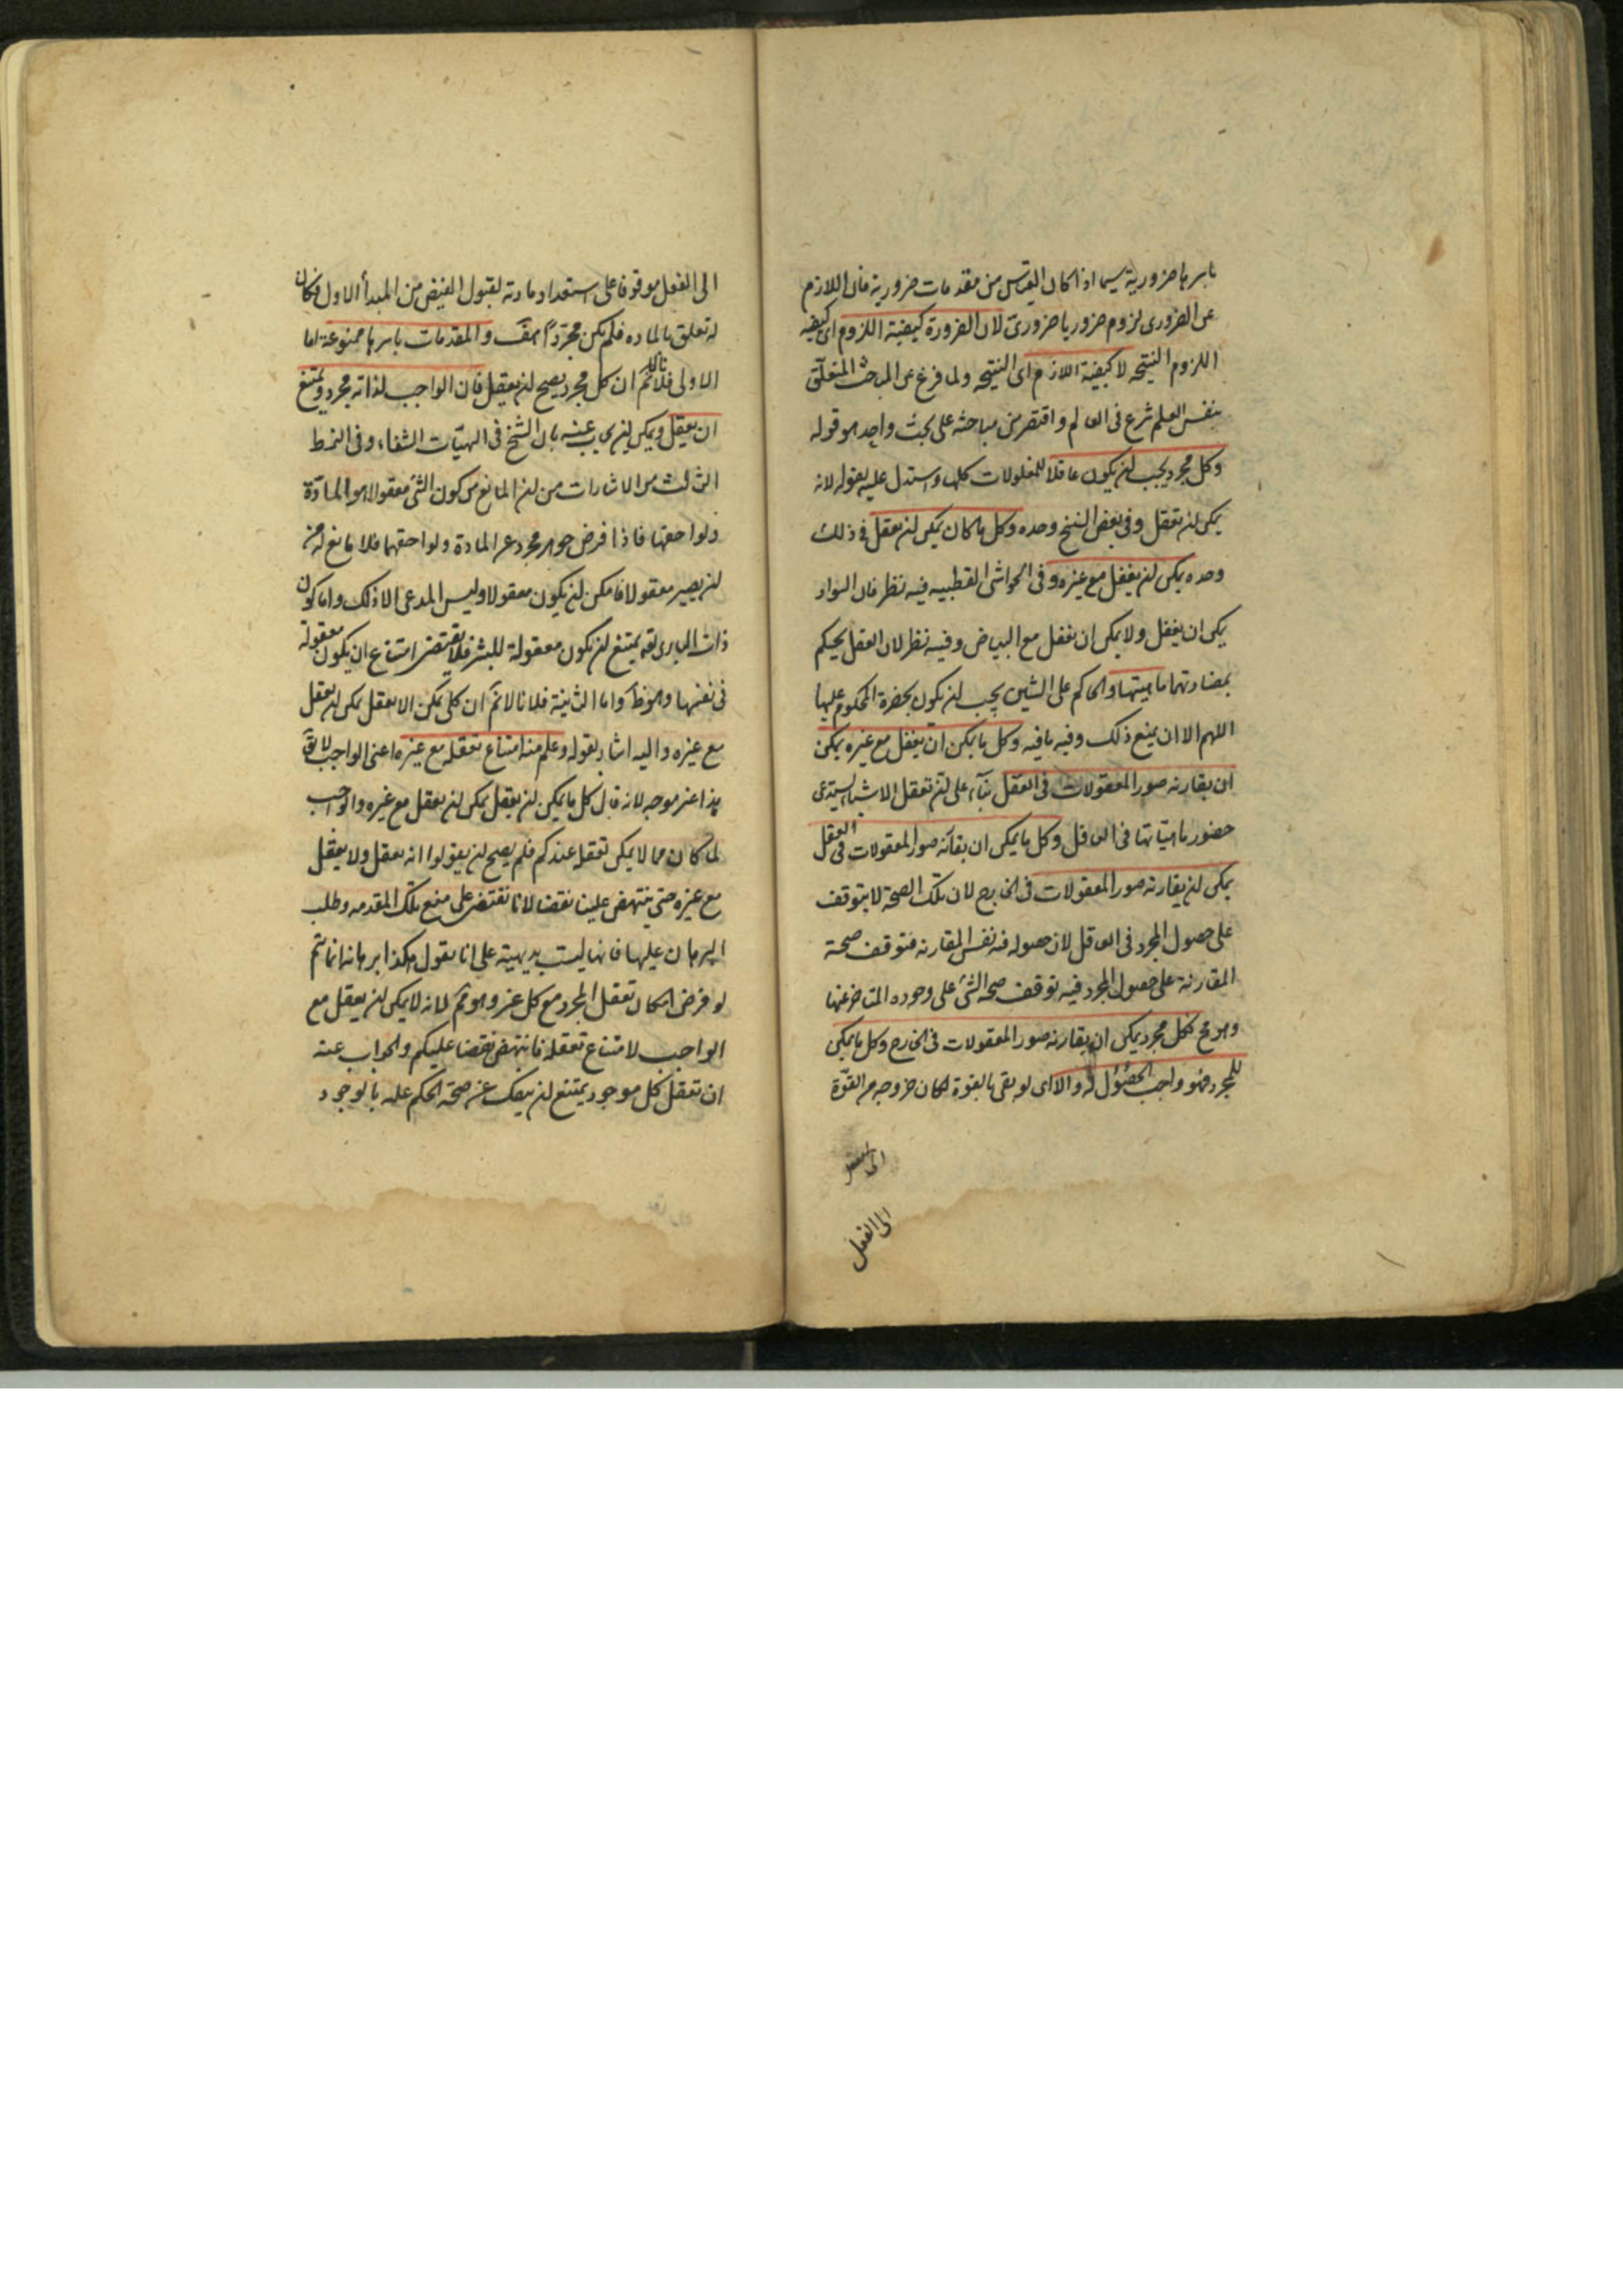 باسرها ضرورية سيما اذا كان القياس من مقدمات ضرورية فان اللازم
عن الضرورى لزوم ضروريا ضرورىّ لان الضرورة كيفية اللزوم اى كيفيه
اللزوم النتيجه لا كيفية اللازم اى النتيجه ولما فرغ عن المباحث المتعلق
بنفس العلم شرع فى العالم واقتصر من مباحثه على بحث واحد هو قوله
وكل مجرد يجب ان يكون عاقلا للمعقولات كلها واستدل عليه بقوله لانه
يمكن ان يعقل وفى بعض النسخ وحده وكل ما كان يمكن ان يعقل فى ذلك
وحده يمكن ان يعقل مع غيره وفى الحواشى القطبيه فيه نظر فان السواد
يمكن ان يعقل ولا يمكن ان يعقل مع البياض وفيه نظر لان العقل يحكم
بمضادتهما ماهيتها والحاكم على الشيئين يجب ان يكون بحضرة المحكوم عليها
اللهم الا ان يمنع ذلك وفيه ما فيه وكل ما يمكن ان يعقل مع غيره يمكن
ان يقارنه صور المعقولات فى العقل بناء على ان تعقل الاشياء يستدعى
حضور ماهياتها فى العاقل وكل ما يمكن ان يقارنه صور المعقولات فى العقل
يمكن ان يقارنه صور المعقولات فى الخارج لان تلك الصحة لا يتوقف
على حصول المجرد فى العاقل لان حصوله فيه نفس المقارنه فتوقف صحة
المقارنة على حصول المجرد فيه توقف صحه الشئ على وجوده المتاخر عنها
وهو مح فكل مجرد يمكن ان يقارنه صور المعقولات فى الخارج وكل ما يمكن
للمجرد فهو واجب الحصول له والا اى لو بقى بالقوة لكان خروجه من القوّة
الى الفعل
الى الفعل موقوفا على استعداد مادته لقبول الفيض من المبدأ الاول فكان
له تعلق بالماده فلم يكن مجرّدًا هف والمقدمات باسرها ممنوعة اما
الاولى فلانا لانم ان كل مجرد يصح ان يعقل فان الواجب لذاته مجرد ويمتنع
ان يعقل ويمكن ان يجاب عنه بان الشيخ فى الهيّات الشفاء وفى النمط
الثالث من الاشارات من ان المانع من كون الشئ معقولا هو المادّة
ولواحقها فاذا فرض جوهر مجرد عن المادة ولواحقها فلا مانع له من
ان يصير معقولا فامكن ان يكون معقولا وليس المدعى الا ذلك واما كون
ذات البارى تعه يمتنع ان يكون معقولة للبشر فلا يقتضى امتناع ان يكون معقولة
فى نفسها وهو ظ واما الثانية فلانا لانم ان كل يمكن الا يعقل يمكن ان يعقل
مع غيره واليه اشار بقوله وعلم منه امتناع تعقله مع غيره اعنى الواجب لا يق
هذا غير موجه لانه قال كل ما يمكن ان يعقل يمكن ان يعقل مع غيره والواجب
لما كان مما لا يمكن تعقله عندكم فلم يصح ان يقولوا انه يعقل ولا يعقل
مع غيره حتى ينتهض علينا نقضا لانا نقتصر على منع تلك المقدمه وطلب
البرهان عليها فانها ليست بديهية على انا نقول هكذا برهانه انما يتم
لو فرض امكان تعقل المجرد مع كل غير وهو مم لانه لا يمكن ان يعقل مع
الواجب لامتناع تعقله فانتهض نقضا عليكم والجواب عنه
ان تعقل كل موجود يمتنع ان ينفك عن صحة الحكم عليه بالوجود